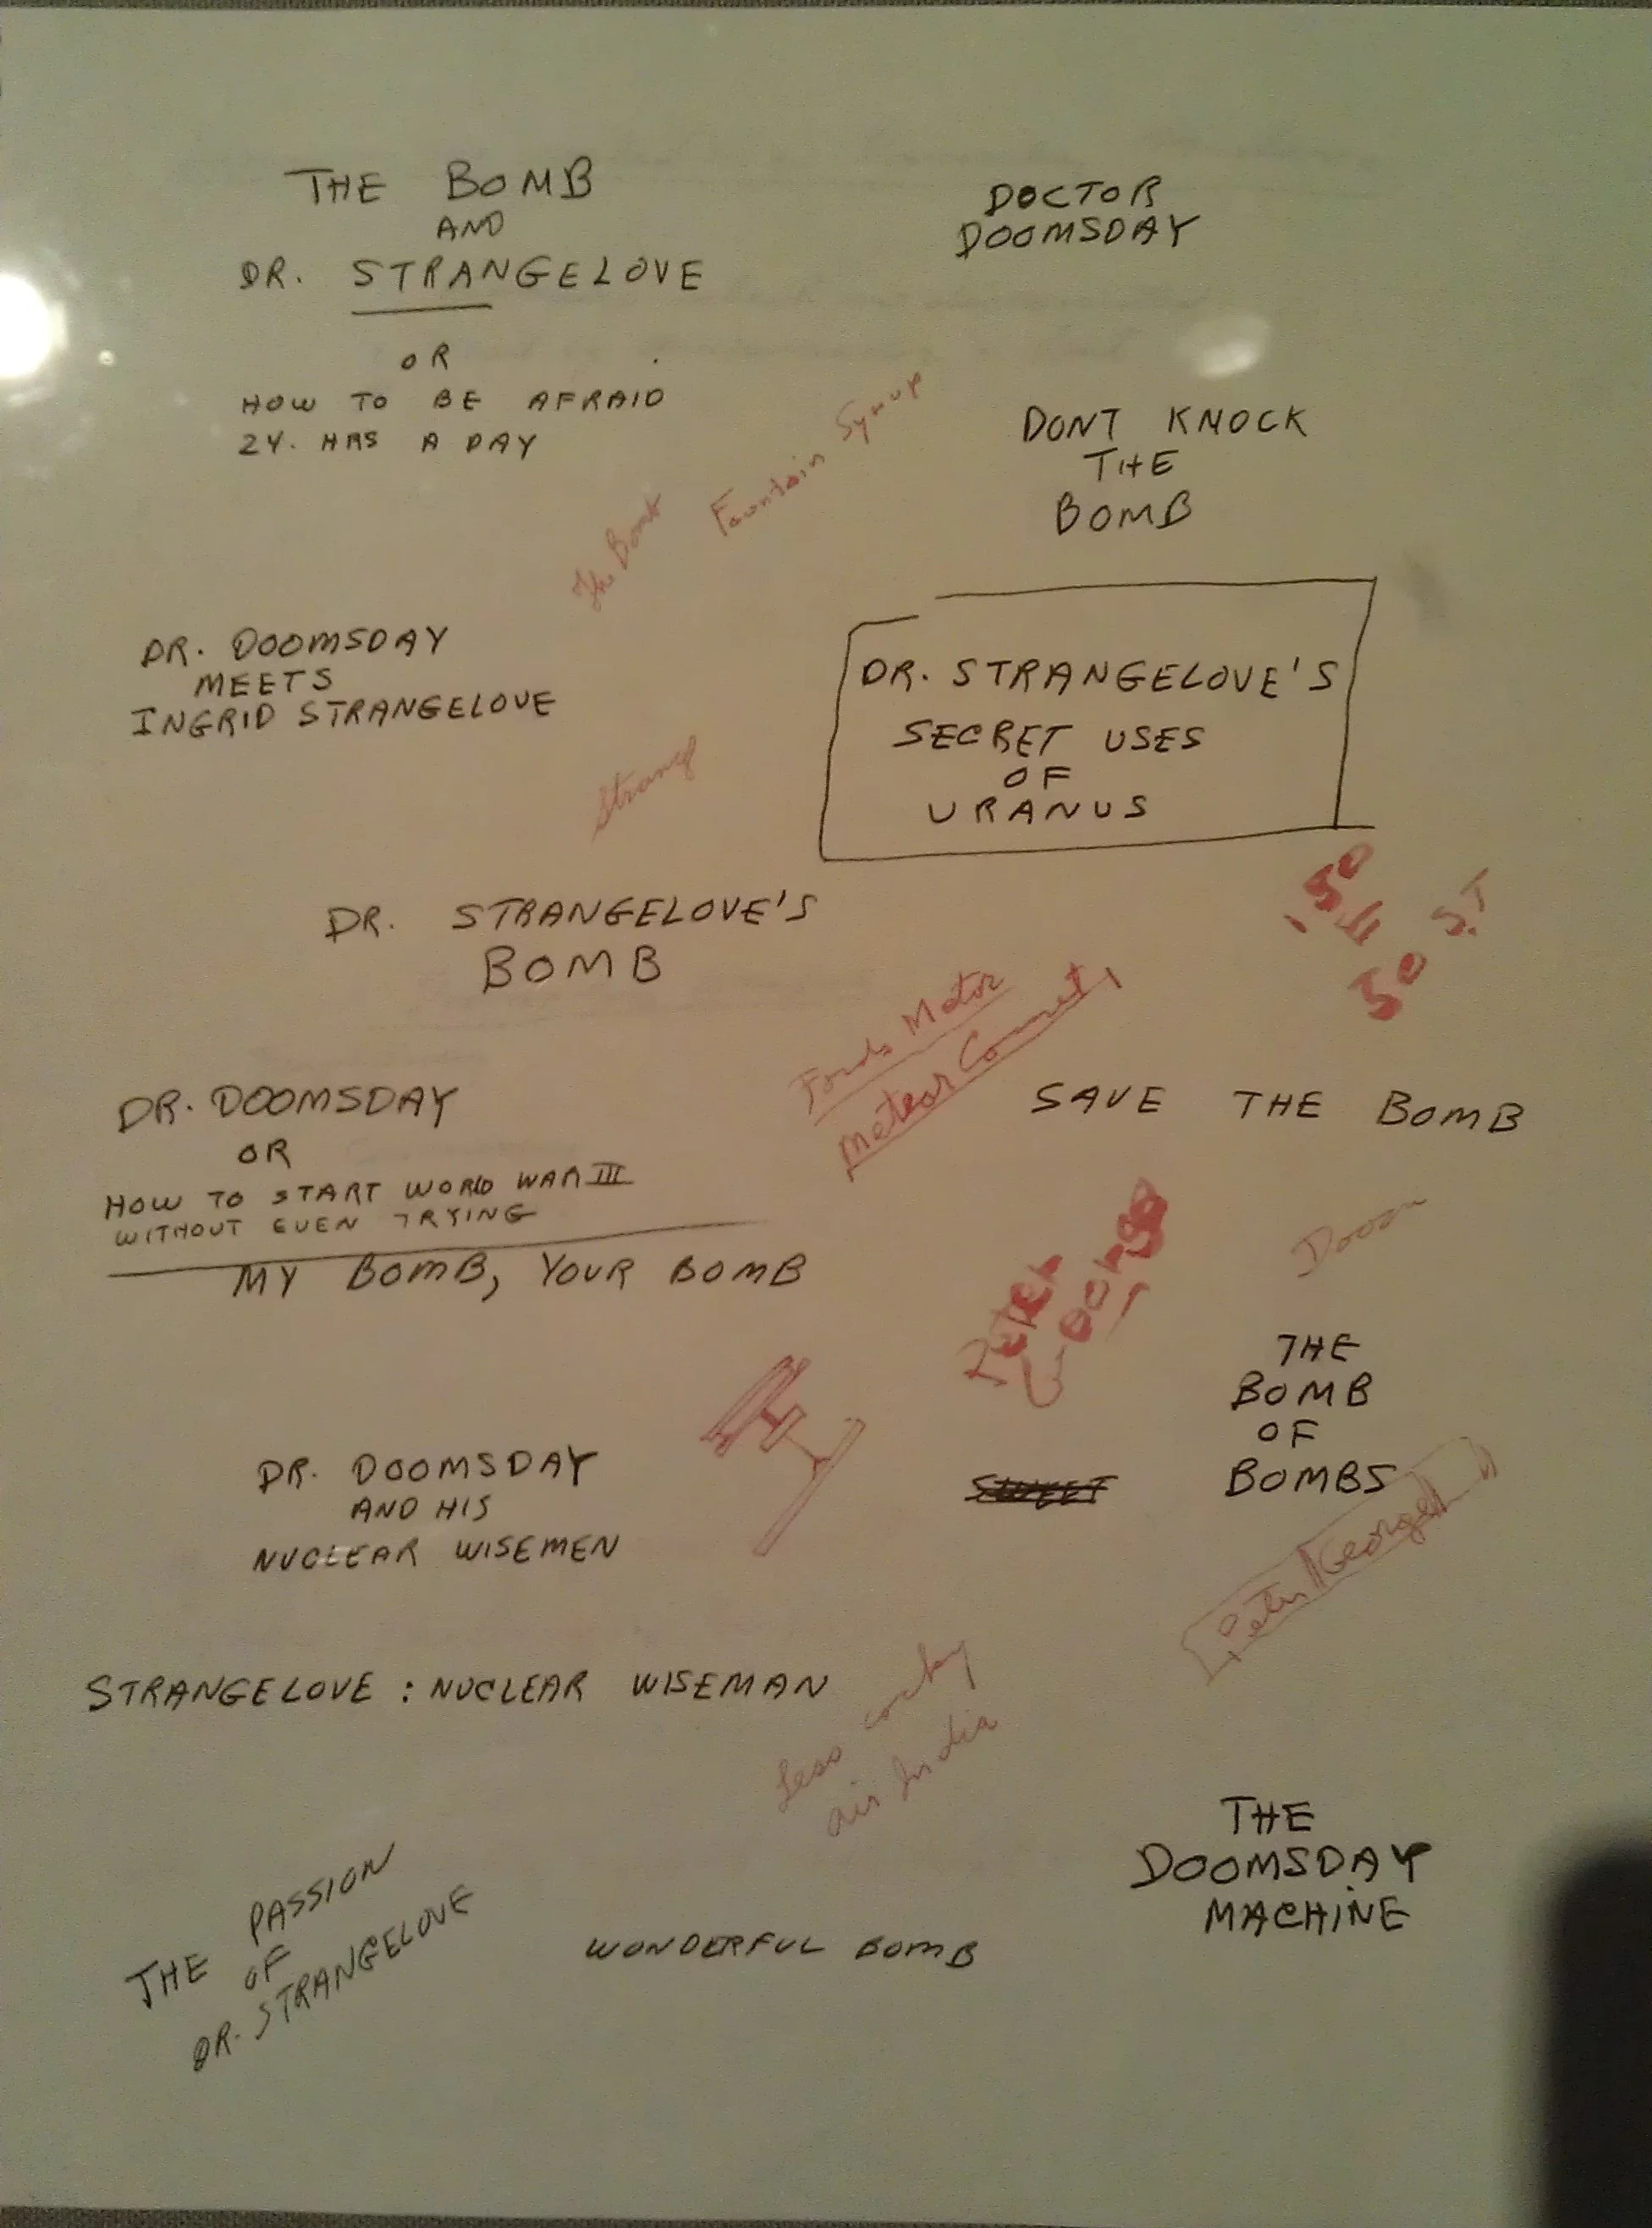 THE BOMB
AND
DR. STRANGELOVE
OR
HOW TO BE AFRAID
24. HRS A DAY
DOCTOR
DOOMSDAY
DONT KNOCK
THE
BOMB
Fountain Syrup
The Bomb
DR. DOOMSDAY
MEETS
INGRID STRANGELOVE
DR. STRANGELOVE'S
SECRET USES
OF
URANUS
Strang
DR. STRANGELOVE'S
BOMB
150
E
50 ST
Fords Motor
Meteor Comet
SAVE THE BOMB
DR. DOOMSDAY
OR
HOW TO START WORLD WAR III
WITHOUT EVEN TRYING
MY BOMB, YOUR BOMB
Doom
Peter
George
THE
BOMB
OF
BOMBS
SWEET
DR. DOOMSDAY
AND HIS
NUCLEAR WISEMEN
Peter George
STRANGELOVE : NUCLEAR WISEMAN
Less corky
air India
THE
DOOMSDAY
MACHINE
THE PASSION
OF
DR. STRANGELOVE
WONDERFUL BOMB